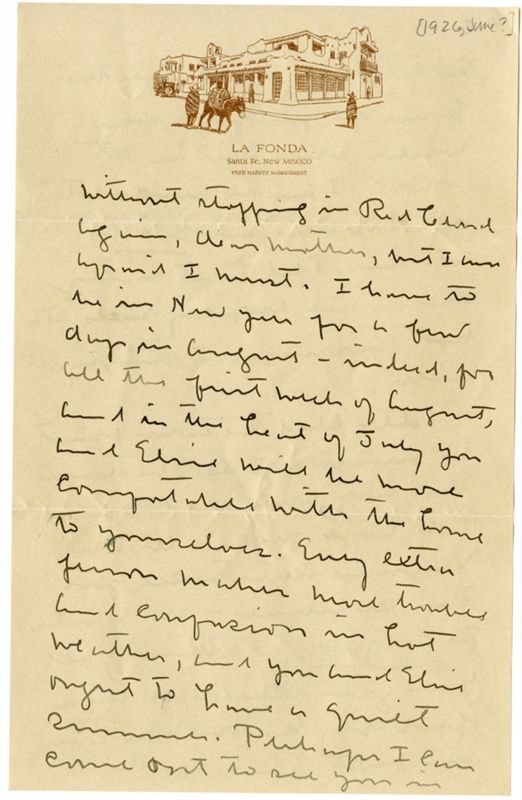 [1926, June?]
LA FONDA
Santa Fe, New Mexico
FRED HARVEY MANAGEMENT
without stopping in Red Cloud
again, dear mother, but I am
afraid I must. I have to
be in New York for a few
days in August - indeed, for
all the first week of August,
and in the heat of July you
and Elsie will be more
comfortable with the home
to yourselves. Every extra
person makes more trouble
and confusion in hot
weather, and you and Elsie
ought to have a quiet
summer. Perhaps I can
come out to see you in